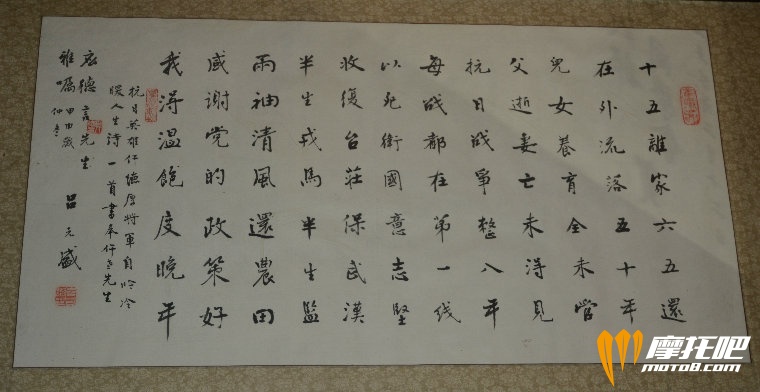 十五離家六五還
在外流落五十年
兒女養育全未管
父逝妻亡未得見
抗日战爭整八年
每战都在第一线
以死衛國意志堅
收復台莊保武漢
半生戎馬半生監
兩袖清風還農田
感谢党的政策好
我得温飽度晚年
抗日英雄仵德厚将軍自吟冷
暖人生诗一首書奉仵老先生
应德先生
雅嘱
甲申歲
仲冬
吕元盛
摩托吧
moto8.com